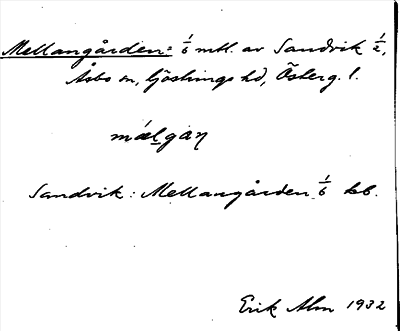 Mellangården: 1/6 mtl. av Sandvik 1/2,
Åsbo sn, Göstrings hd, Österg. l.
málgaɳ
Sandvik: Mellangården 1/6 kb.
Erik Alm 1932